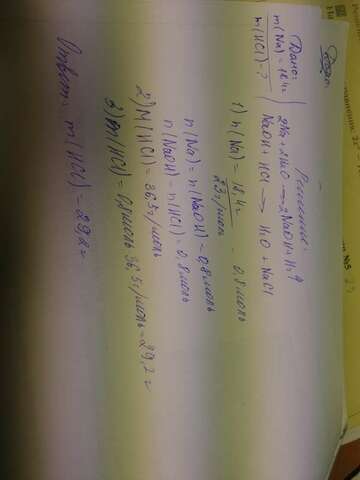 Дано:
m(Na) = 18,4г
m(HCl) - ?
Решение:
2Na + 2H₂O → 2NaOH + H₂↑
NaOH + HCl → H₂O + NaCl
1) n(Na) = 18,4г / 23г/моль = 0,8моль
n(Na) = n(NaOH) = 0,8моль
n(NaOH) = n(HCl) = 0,8моль
2) M(HCl) = 36,5г/моль
3) m(HCl) = 0,8моль · 36,5г/моль = 29,2г
Ответ: m(HCl) = 29,2г